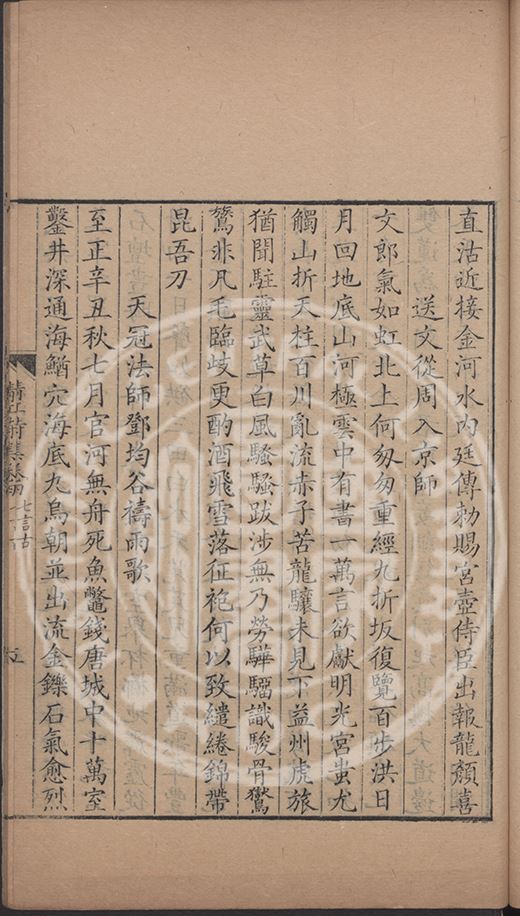 直沽近接金河水內廷傳勅賜宮壺侍臣出報龍顏喜
送文從周入京師
文郎氣如虹北上何匆匆重經九折坂復覽百步洪日
月回地底山河極雲中有書一萬言欲獻明光宮蚩尤
觸山折天柱百川亂流赤子苦龍驤未見下益州虎旅
猶聞駐靈武草白風騷騷跋涉無乃勞驊騮識駿骨鸑
鷟非凡毛臨歧更酌酒飛雪落征袍何以致繾綣錦帶
昆吾刀
天冠法師鄧均谷禱雨歌
至正辛丑秋七月官河無舟死魚鼈錢唐城中十萬室
鑿井深通海鰌穴海底九烏朝並出流金鑠石氣愈烈
七言古
五